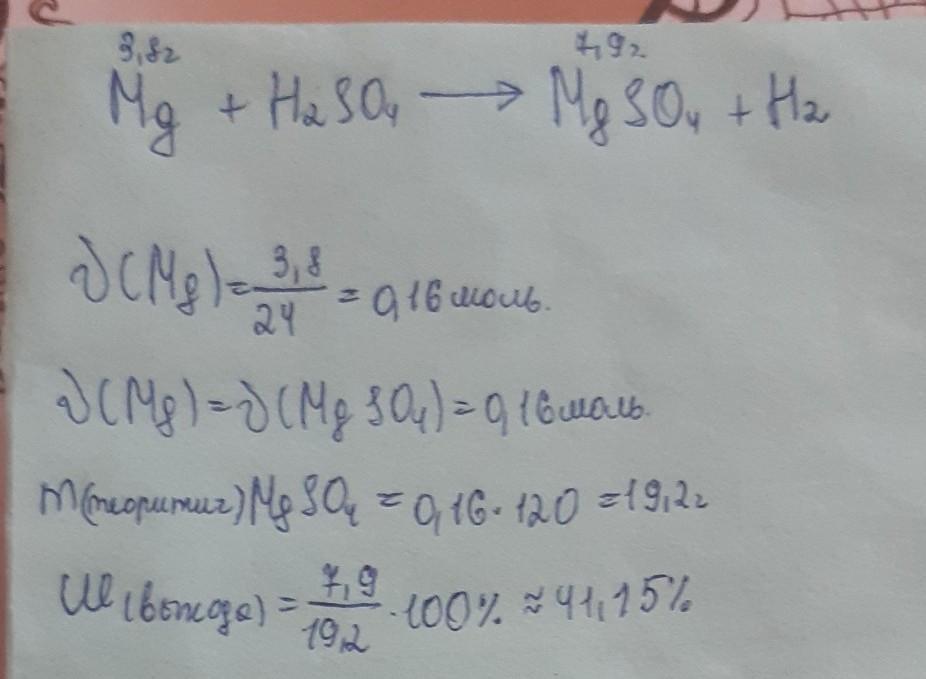 3,8г 7,9г
Mg + H₂SO₄ ⟶ MgSO₄ + H₂
ν(Mg) = 3,8/24 = 0,16 моль.
ν(Mg) = ν(MgSO₄) = 0,16 моль.
m(теоритич) MgSO₄ = 0,16 · 120 = 19,2г
ω(выхода) = 7,9/19,2 · 100% ≈ 41,15%